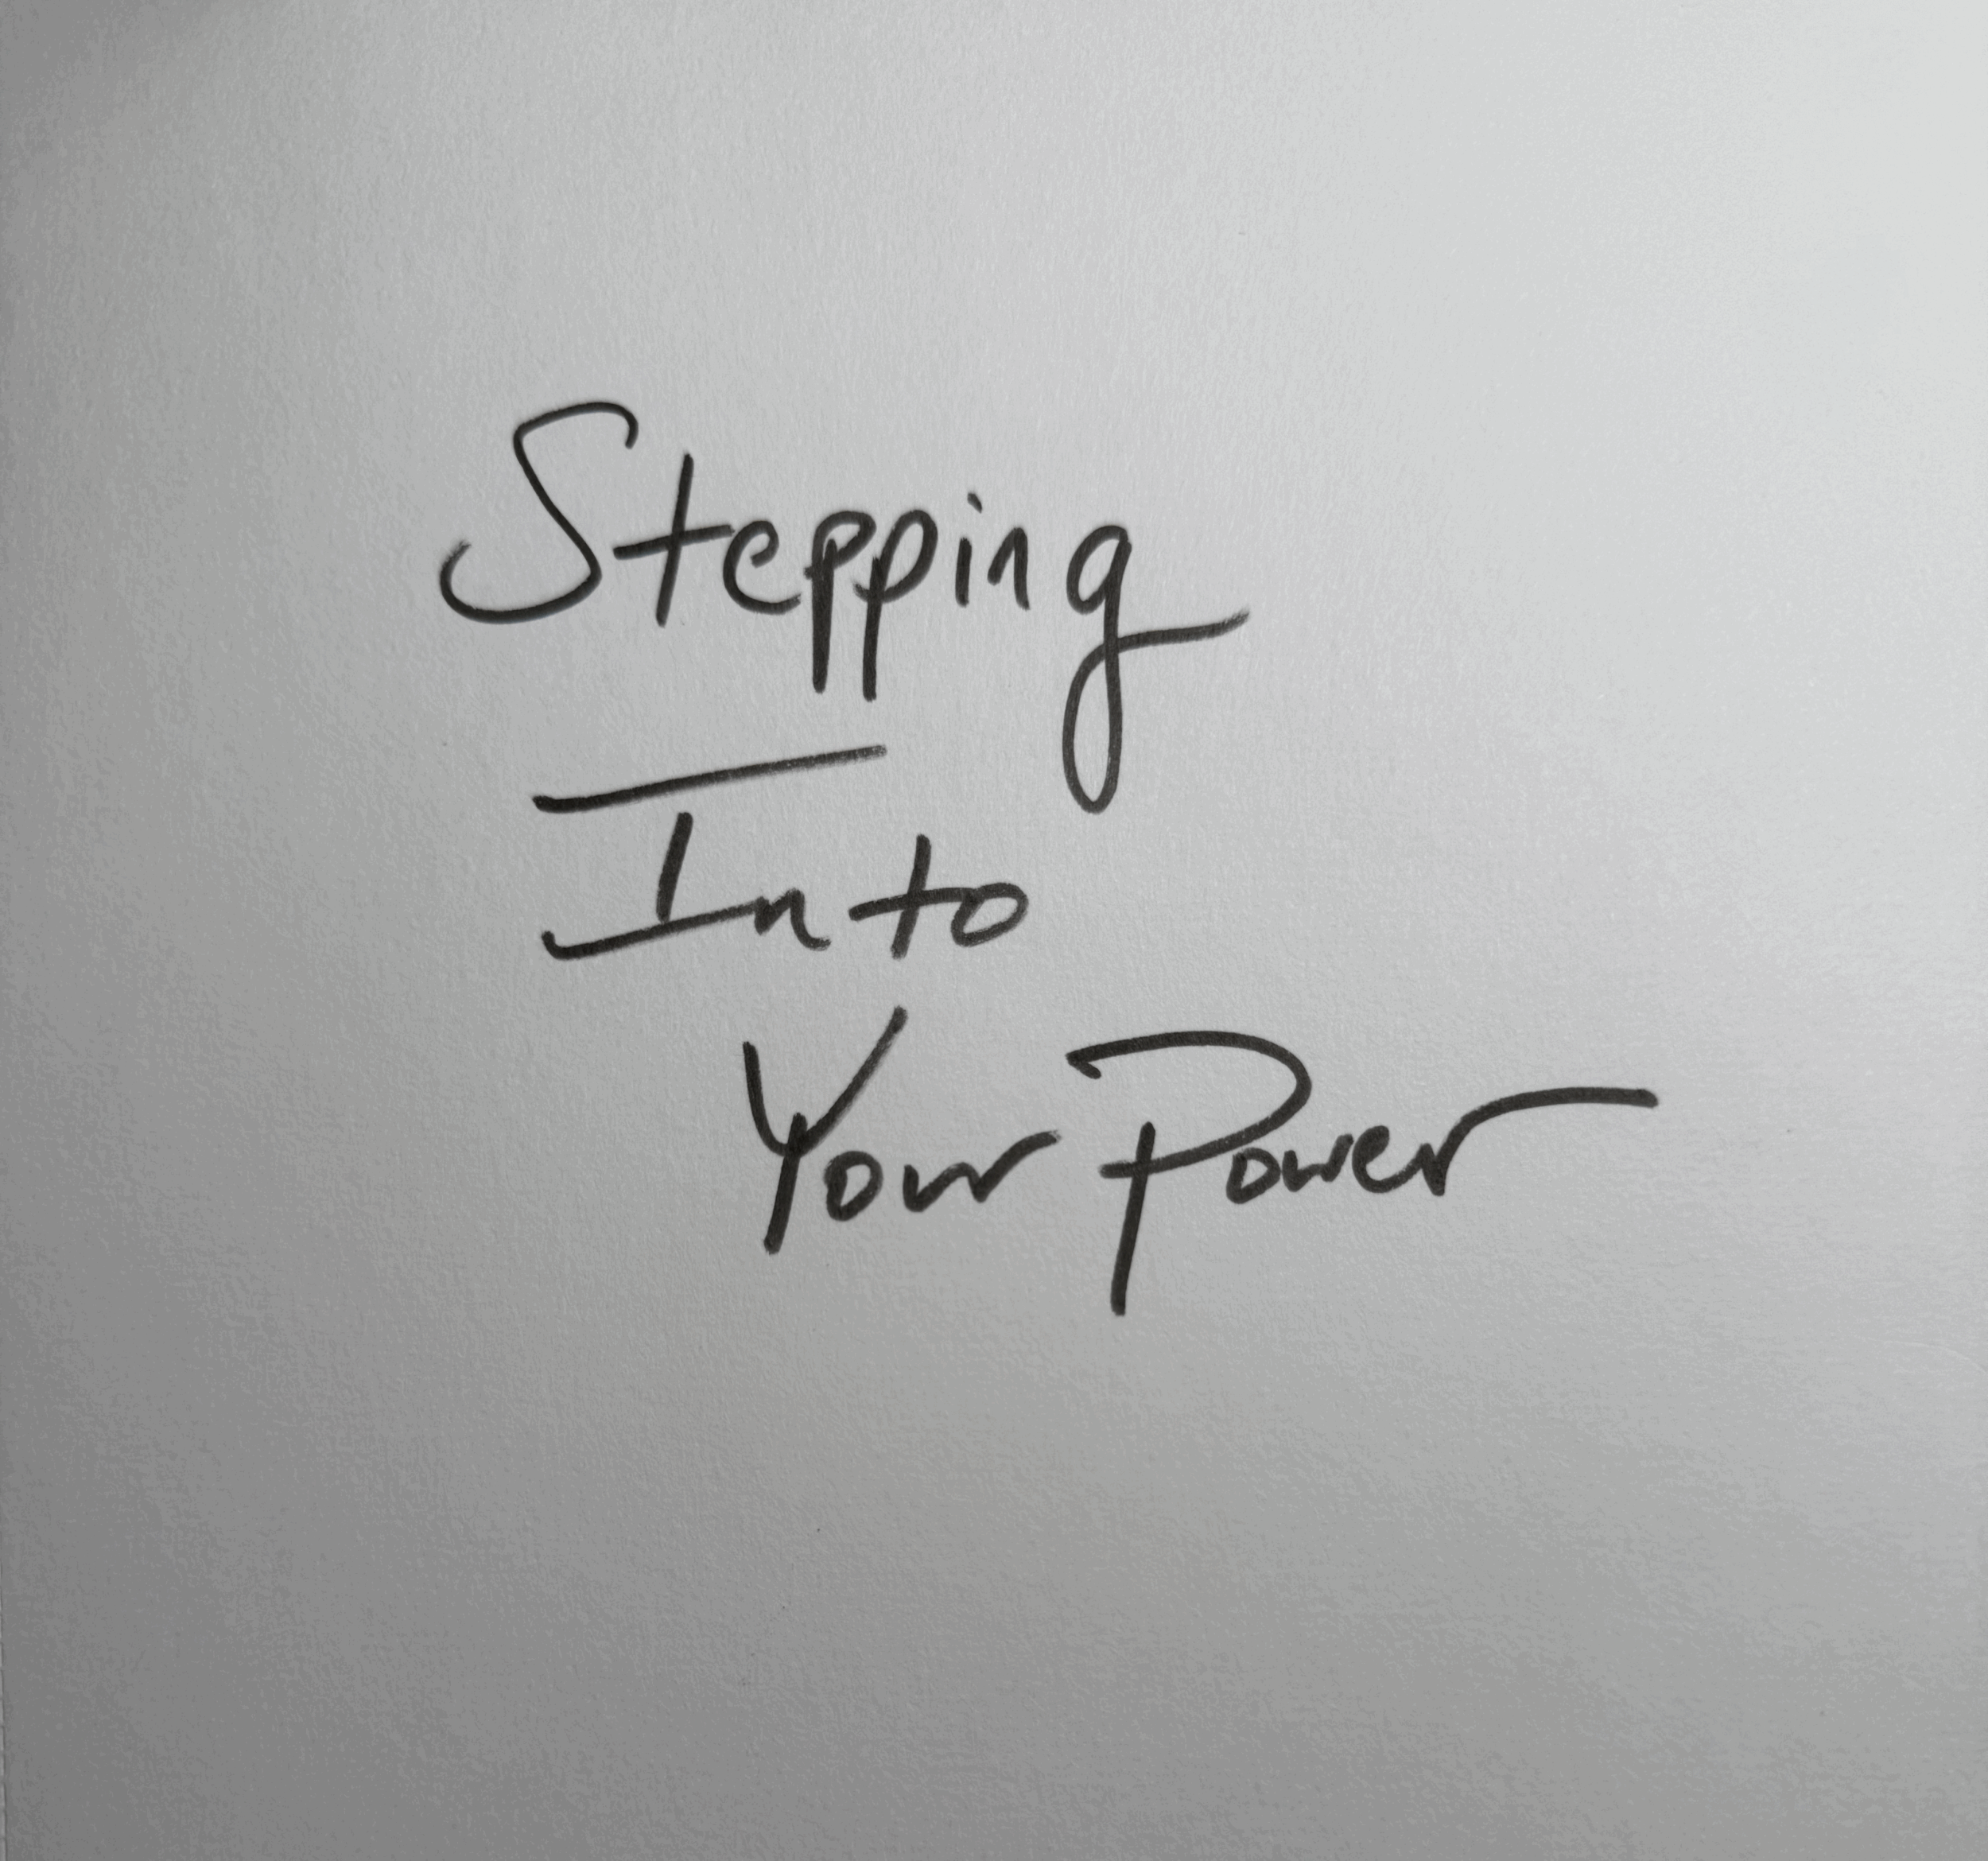 Stepping
Into
Your Power